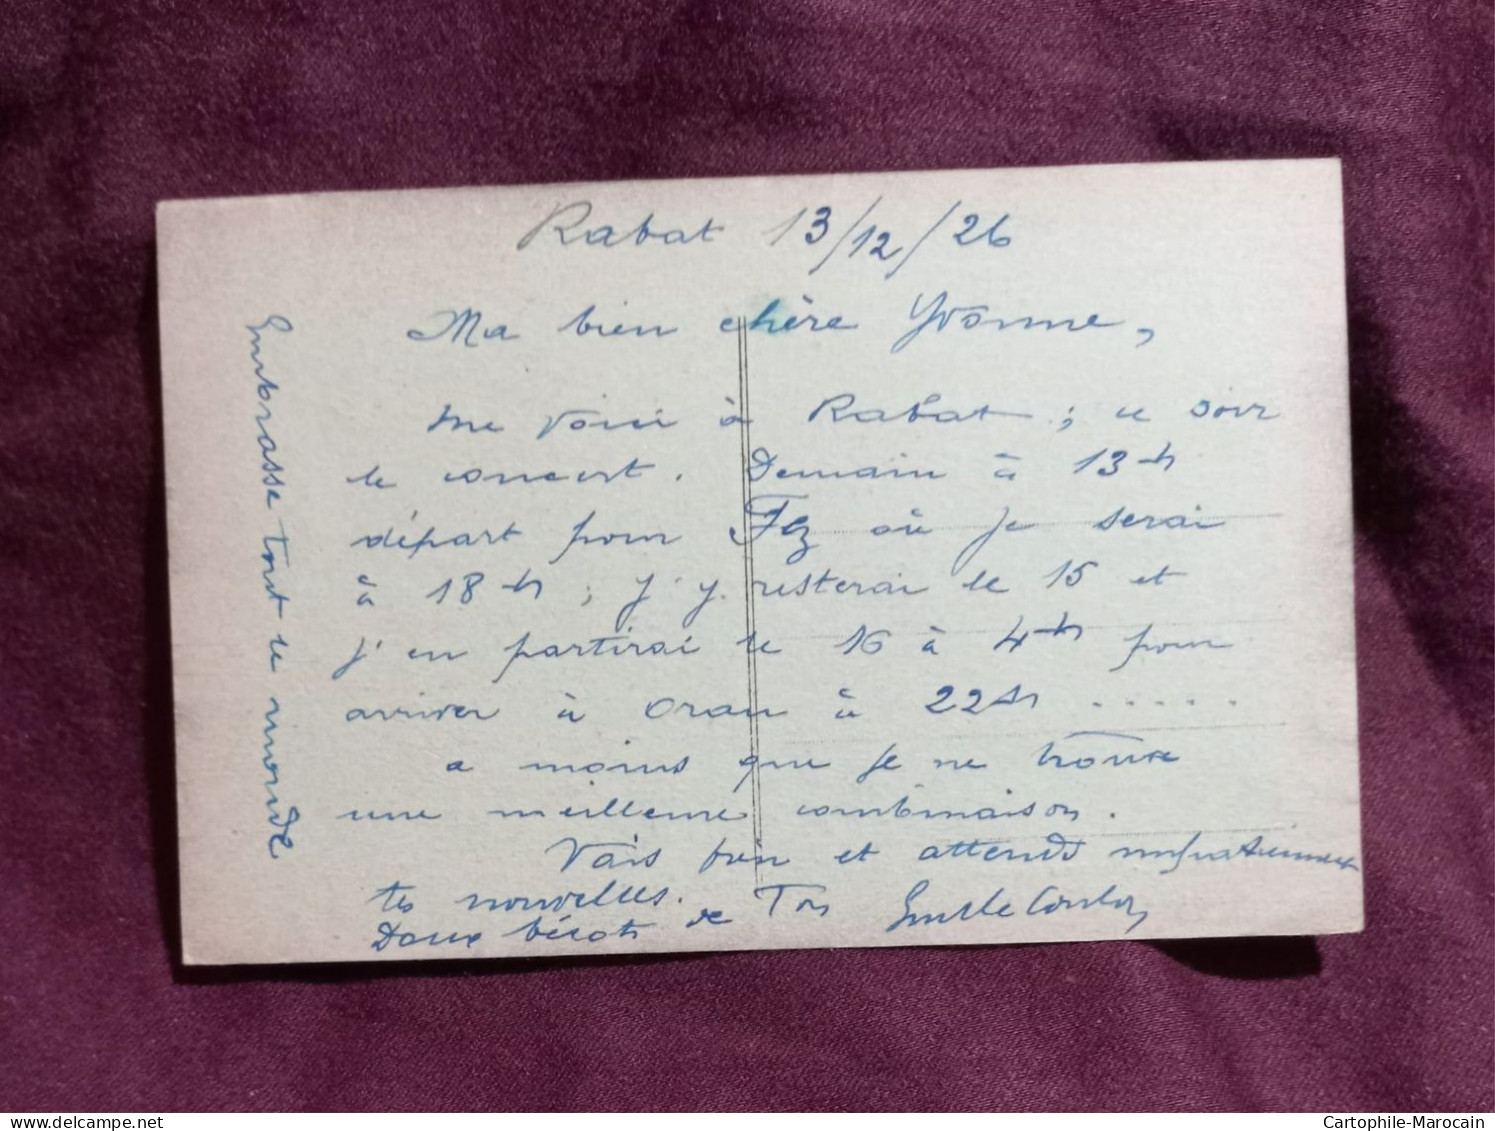 Rabat 13/12/26
Ma bien chère Yvonne,
me voici à Rabat ; ce soir
le concert. Demain à 13h
départ pour Fez où je serai
à 18h ; j'y resterai le 15 et
j'en partirai le 16 à 4h pour
arriver à Oran à 22h .....
a moins que je ne trouve
une meilleure combinaison.
Vais bien et attends impatiemment
tes nouvelles.
Doux bécots de Ton
Embrasse tout le monde
Cartophile-Marocain